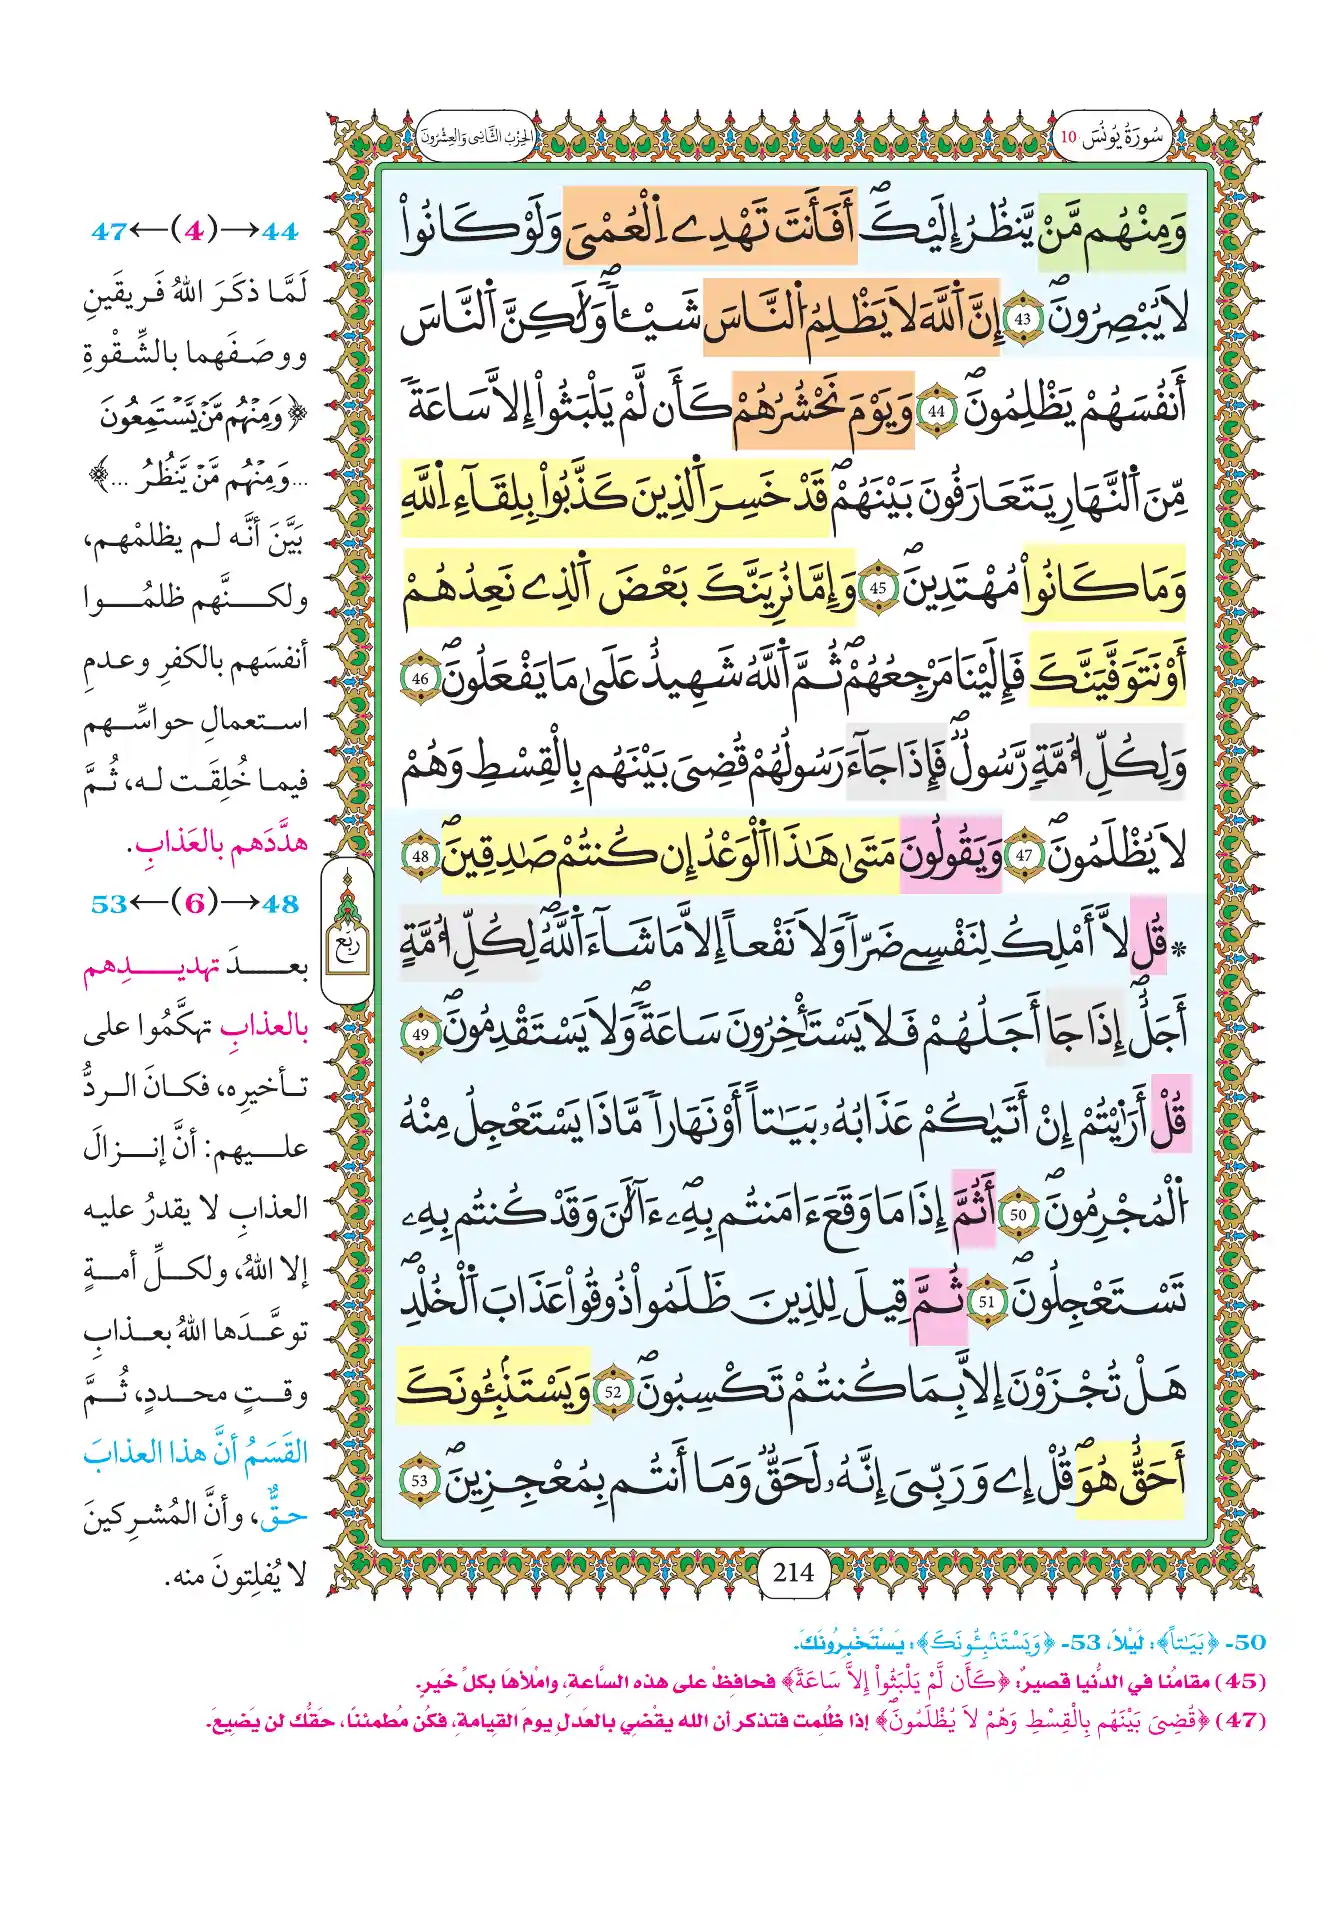 سُورَةُ يُونُسَ 10
الحِزْبُ الثَّانِي وَالعِشْرُونَ
وَمِنْهُم مَّنْ يَّنظُرُ إِلَيْكَۖ أَفَأَنتَ تَهْدِے اِ۬لْعُمْيَ وَلَوْ كَانُواْ
لَا يُبْصِرُونَۖ 43 إِنَّ اَ۬للَّهَ لَا يَظْلِمُ اُ۬لنَّاسَ شَيْـٔاٗۖ وَلَٰكِنَّ اَ۬لنَّاسَ
أَنفُسَهُمْ يَظْلِمُونَۖ 44 وَيَوْمَ نَحْشُرُهُمْ كَأَن لَّمْ يَلْبَثُواْ إِلَّا سَاعَةٗ
مِّنَ اَ۬لنَّهَارِ يَتَعَارَفُونَ بَيْنَهُمْۖ قَدْ خَسِرَ اَ۬لذِينَ كَذَّبُواْ بِلِقَآءِ اِ۬للَّهِ
وَمَا كَانُواْ مُهْتَدِينَۖ 45 وَإِمَّا نُرِيَنَّكَ بَعْضَ اَ۬لذِے نَعِدُهُمْ
أَوْ نَتَوَفَّيَنَّكَ فَإِلَيْنَا مَرْجِعُهُمْۖ ثُمَّ اَ۬للَّهُ شَهِيدٌ عَلَىٰ مَا يَفْعَلُونَۖ 46
وَلِكُلِّ أُمَّةٖ رَّسُولٞۖ فَإِذَا جَآءَ رَسُولُهُمْ قُضِيَ بَيْنَهُم بِالْقِسْطِ وَهُمْ
لَا يُظْلَمُونَۖ 47 وَيَقُولُونَ مَتَىٰ هَٰذَا اَ۬لْوَعْدُ إِن كُنتُمْ صَٰدِقِينَۖ 48
* قُل لَّا أَمْلِكُ لِنَفْسِے ضَرّاٗ وَلَا نَفْعاً إِلَّا مَا شَآءَ اَ۬للَّهُۖ لِكُلِّ أُمَّةٍ
أَجَلٌۖ إِذَا جَا أَجَلُهُمْ فَلَا يَسْتَٰٔخِرُونَ سَاعَةٗۖ وَلَا يَسْتَقْدِمُونَۖ 49
قُلْ أَرَٰيْتُمْ إِنْ أَتَىٰكُمْ عَذَابُهُۥ بَيَٰتاً أَوْ نَهَاراٗ مَّاذَا يَسْتَعْجِلُ مِنْهُ
اُ۬لْمُجْرِمُونَۖ 50 أَثُمَّ إِذَا مَا وَقَعَ ءَامَنتُم بِهِۦۖ ءَآلَٰنَ وَقَدْ كُنتُم بِهِۦ
تَسْتَعْجِلُونَۖ 51 ثُمَّ قِيلَ لِلذِينَ ظَلَمُواْ ذُوقُواْ عَذَابَ اَ۬لْخُلْدِۖ
هَلْ تُجْزَوْنَ إِلَّا بِمَا كُنتُمْ تَكْسِبُونَۖ 52 وَيَسْتَنۢبِـُٔونَكَ
أَحَقٌّ هُوَۖ قُلْ إِے وَرَبِّيَ إِنَّهُۥ لَحَقّٞ وَمَا أَنتُم بِمُعْجِزِينَۖ 53
ربع
214
44→(4)←47
لَمَّا ذكَرَ اللهُ فَريقَينِ
ووصَفَهما بالشِّقْوةِ
﴿وَمِنْهُم مَّنْ يَّسْتَمِعُونَ
...وَمِنْهُم مَّنْ يَّنظُرُ ...﴾
بيَّنَ أنَّه لم يظلمْهم،
ولكنَّهم ظلمُوا
أنفسَهم بالكفرِ وعدمِ
استعمالِ حواسِّهم
فيما خُلِقَت له، ثُمَّ
هدَّدَهم بالعَذابِ.
48→(6)←53
بعدَ تهديدِهم
بالعذابِ تهكَّمُوا على
تأخيرِه، فكانَ الردُّ
عليهم: أنَّ إنزالَ
العذابِ لا يقدرُ عليه
إلا اللهُ، ولكلِّ أمةٍ
توعَّدَها اللهُ بعذابٍ
وقتٍ محددٍ، ثُمَّ
القَسَمُ أنَّ هذا العذابَ
حقٌّ، وأنَّ المُشركينَ
لا يُفلِتونَ منه.
50- ﴿بَيَٰتاً﴾: لَيْلاً، 53- ﴿وَيَسْتَنۢبِـُٔونَكَ﴾: يَسْتَخْبِرُونَكَ.
(45) مقامُنا في الدُّنيا قصيرٌ: ﴿كَأَن لَّمْ يَلْبَثُواْ إِلَّا سَاعَةٗ﴾ فحافِظْ على هذه السَّاعةِ، واملأهَا بكلِّ خَيرٍ.
(47) ﴿قُضِيَ بَيْنَهُم بِالْقِسْطِ وَهُمْ لَا يُظْلَمُونَۖ﴾ إذا ظُلِمت فتذكر أن الله يقضي بالعدلِ يومَ القِيامةِ، فكُن مُطمئنًا، حَقُّك لن يَضيعَ.